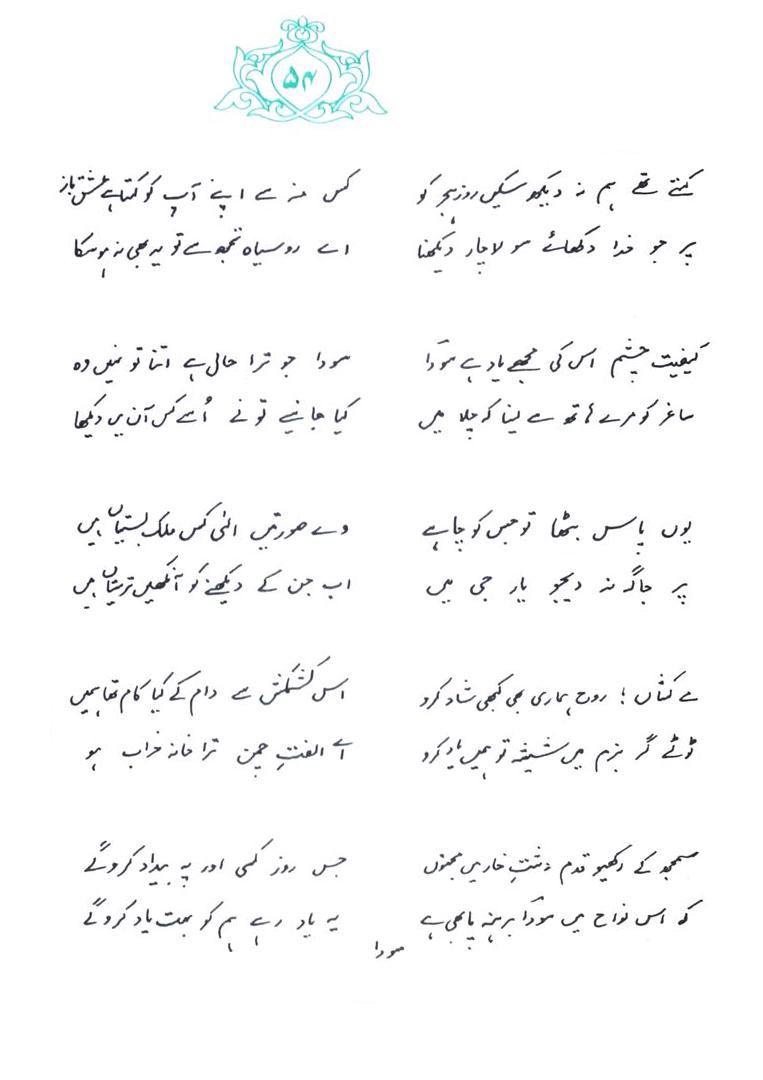 ۵۴
کہتے تھے ہم نہ دیکھ سکیں روزِ ہجر کو
پر جو خدا دکھائے سو لاچار دیکھنا
کس منہ سے اپنے آپ کو کہتا ہے عشق باز
اے روسیاہ تجھ سے تو یہ بھی نہ ہو سکا
کیفیت چشم اس کی مجھے یاد ہے سوداؔ
ساغر کو مرے ہاتھ سے لینا کہ چلا میں
سودا جو ترا حال ہے اتنا تو نہیں وہ
کیا جانیے تو نے اُسے کس آن میں دیکھا
یوں پاس بٹھا تو جس کو چاہے
پر جاگہ نہ دیجو یار جی میں
وے صورتیں الٰہی کس ملک بستیاں ہیں
اب جن کے دیکھنے کو آنکھیں ترستیاں ہیں
مے کشاں ! روح ہماری بھی کبھی شاد کرو
ٹوٹے گر بزم میں شیشہ تو ہمیں یاد کرو
اس کشمکش سے دام کے کیا کام تھا ہمیں
اے الفتِ چمن ترا خانہ خراب ہو
سمجھ کے رکھیو قدم دشتِ خار میں مجنوں
کہ اس نواح میں سوداؔ برہنہ پا بھی ہے
جس روز کسی اور پہ بیداد کرو گے
یہ یاد رہے ہم کو بہت یاد کرو گے
سودا